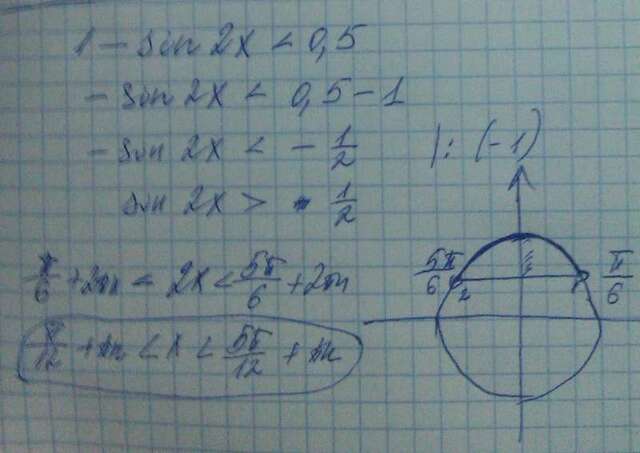 1 - sin 2x < 0,5
- sin 2x < 0,5 - 1
- sin 2x < - 1/2 | : (-1)
sin 2x > 1/2
π/6 + 2πn < 2x < 5π/6 + 2πn
π/12 + πn < x < 5π/12 + πn
5π/6 π/6
2 1